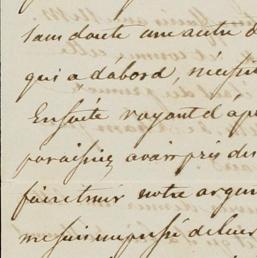 sans doute une autre d
qui a dabord,
Ensuite voyant d'ap
paraissiez avoir pris des
faire tenir notre argen
me suis empressé de leur